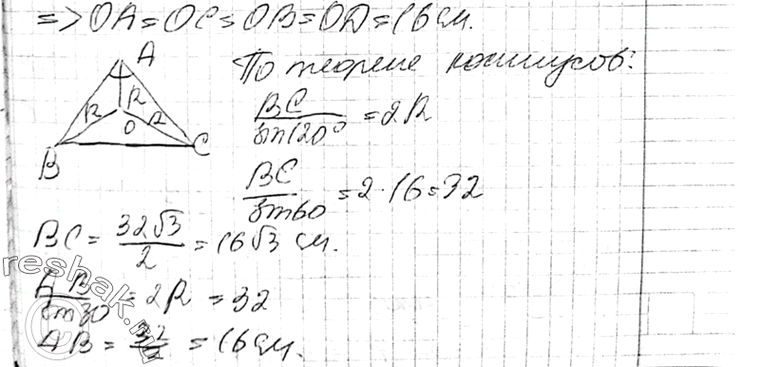 => OA = OC = OB = OD = 16 см.
A
По теореме косинусов:
R R R
O
B C
BC/sin120° = 2R
BC/sin60 = 2·16 = 32
BC = 32√3/2 = 16√3 см.
AB/sin30 = 2R = 32
AB = 32/2 = 16 см.
reshak.ru
©